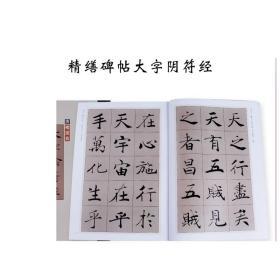 精缮碑帖大字阴符经
天之行盡矣
天有五賊見
之者昌五賊
在心施行於
天宇宙在乎
手萬化生乎